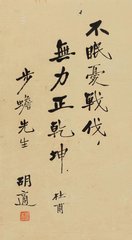 不眠憂戰伐，
無力正乾坤．
杜甫
步蟾先生
胡適